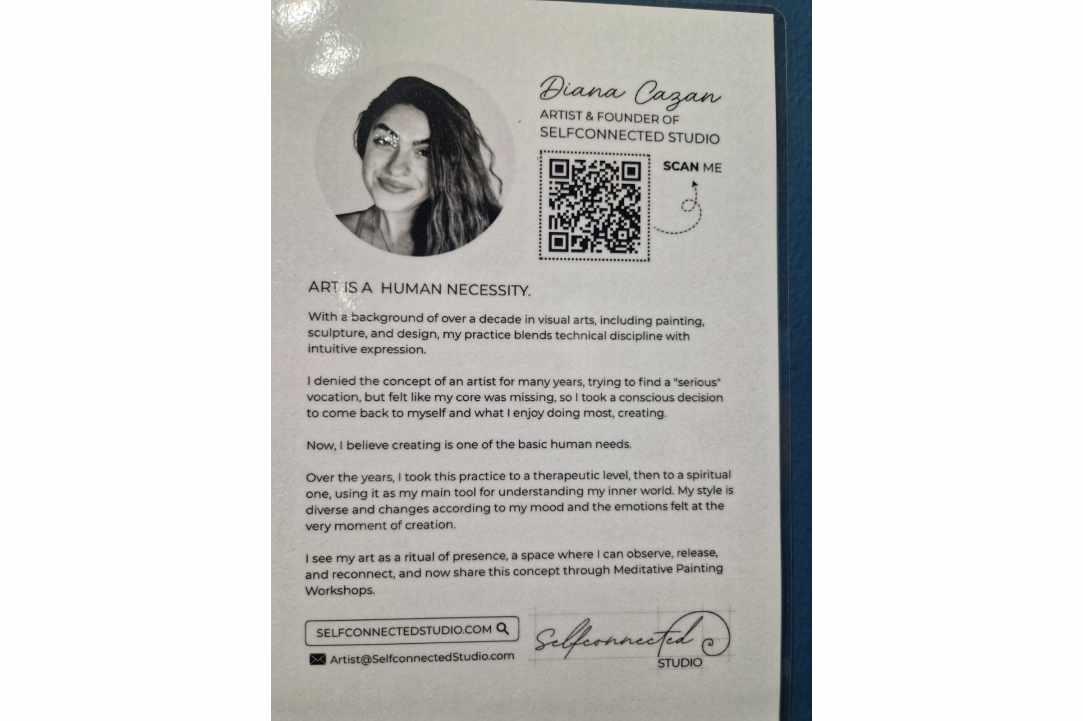 Diana Cazan
ARTIST & FOUNDER OF
SELFCONNECTED STUDIO
SCAN ME
ART IS A HUMAN NECESSITY.
With a background of over a decade in visual arts, including painting,
sculpture, and design, my practice blends technical discipline with
intuitive expression.
I denied the concept of an artist for many years, trying to find a "serious"
vocation, but felt like my core was missing, so I took a conscious decision
to come back to myself and what I enjoy doing most, creating.
Now, I believe creating is one of the basic human needs.
Over the years, I took this practice to a therapeutic level, then to a spiritual
one, using it as my main tool for understanding my inner world. My style is
diverse and changes according to my mood and the emotions felt at the
very moment of creation.
I see my art as a ritual of presence, a space where I can observe, release,
and reconnect, and now share this concept through Meditative Painting
Workshops.
SELFCONNECTEDSTUDIO.COM
Artist@SelfconnectedStudio.com
Selfconnected
STUDIO